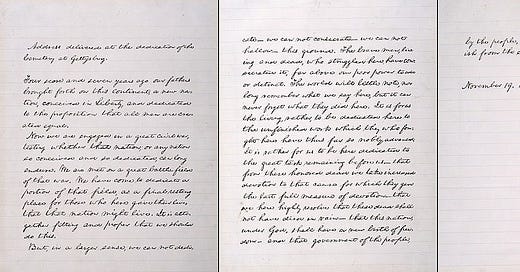 Address delivered at the dedication of the
Cemetery at Gettysburg.
Four score and seven years ago our fathers
brought forth on this continent, a new na-
tion, conceived in Liberty, and dedicated
to the proposition that all men are cre-
ated equal.
Now we are engaged in a great civil war,
testing whether that nation, or any nation
so conceived and so dedicated, can long
endure. We are met on a great battle field
of that war. We have come to dedicate a
portion of that field, as a final resting
place for those who here gave their lives,
that that nation might live. It is alto-
gether fitting and proper that we should
do this.
But, in a larger sense, we can not dedi-
cate— we can not consecrate— we can not
hallow— this ground. The brave men, liv-
ing and dead, who struggled here, have con-
secrated it, far above our poor power to add
or detract. The world will little note, nor
long remember what we say here, but it can
never forget what they did here. It is for us
the living, rather, to be dedicated here to
the unfinished work which they who fou-
ght here have thus far so nobly advanced.
It is rather for us to be here dedicated to
the great task remaining before us— that
from these honored dead we take increased
devotion to that cause for which they gave
the last full measure of devotion— that
we here highly resolve that these dead shall
not have died in vain— that this nation,
under God, shall have a new birth of free-
dom— and that government of the people,
by the people,
ish from the
November 19.